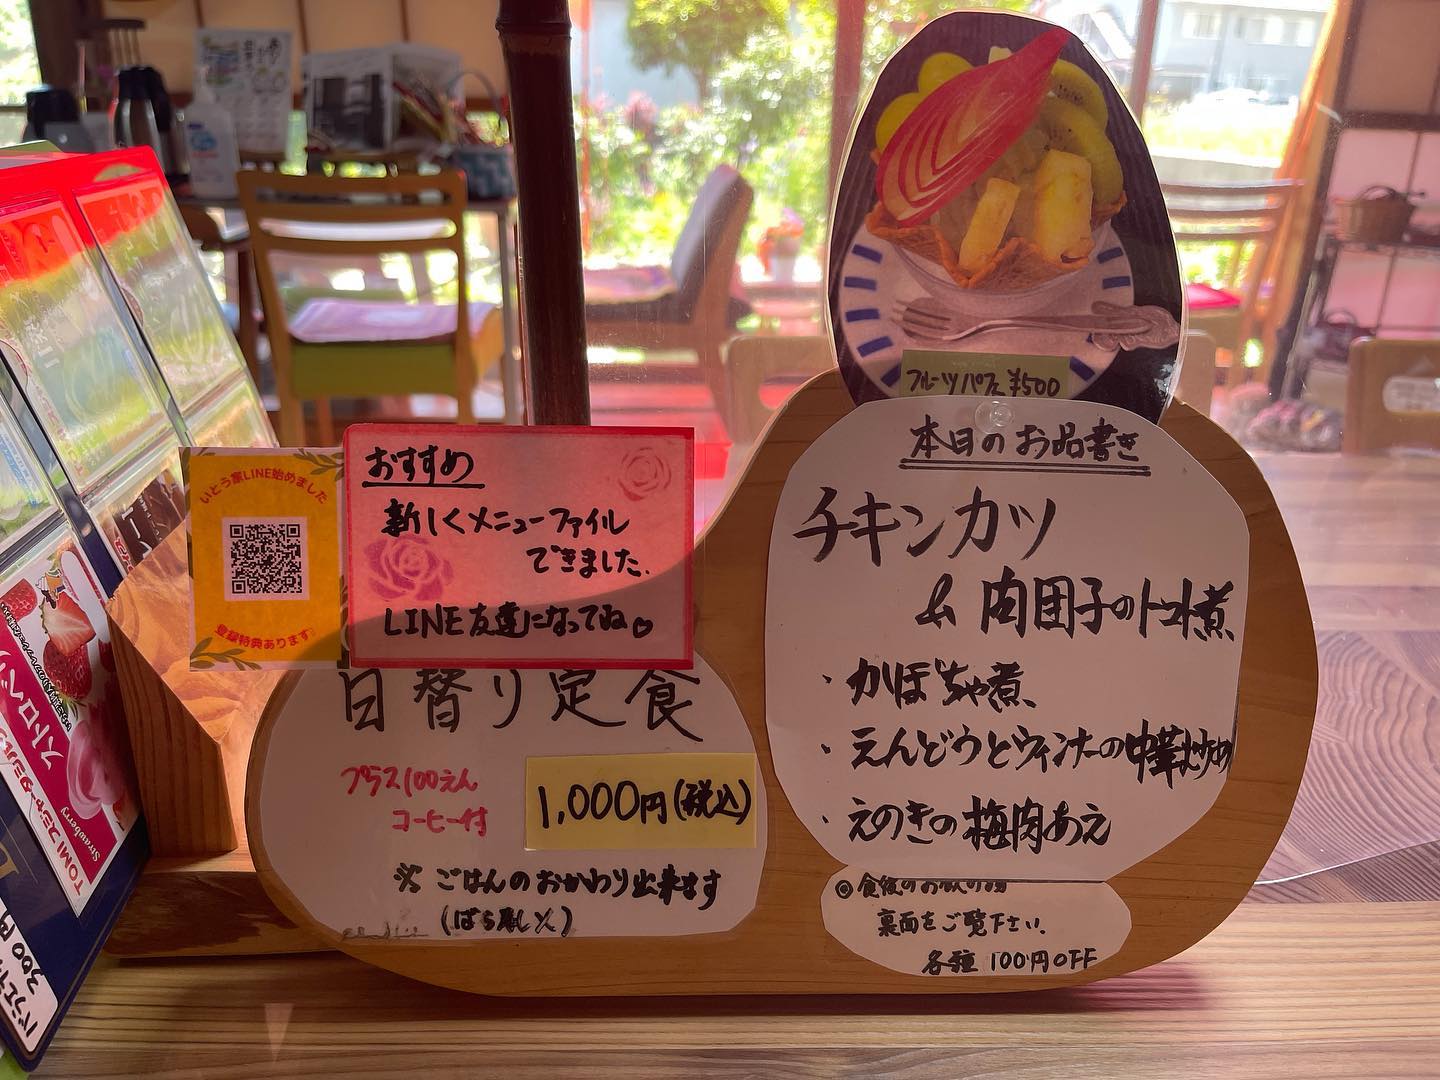 フルーツパフェ ¥500
本日のお品書き
チキンカツ
& 肉団子のトマト煮
・かぼちゃ煮
・えんどうとウィンナーの中華炒め
・えのきの梅肉あえ
◎食後のお飲み物
裏面をご覧下さい.
各種 100円OFF
いとう家LINE始めました
登録特典あります!
おすすめ
新しくメニューファイル
できました.
LINE友達になってね♡
日替り定食
プラス100えん
コーヒー付
1,000円(税込)
※ ごはんのおかわり出来ます
(ばら寿し✕)
ストロベリー
Strawberry
TOMIZ
300円